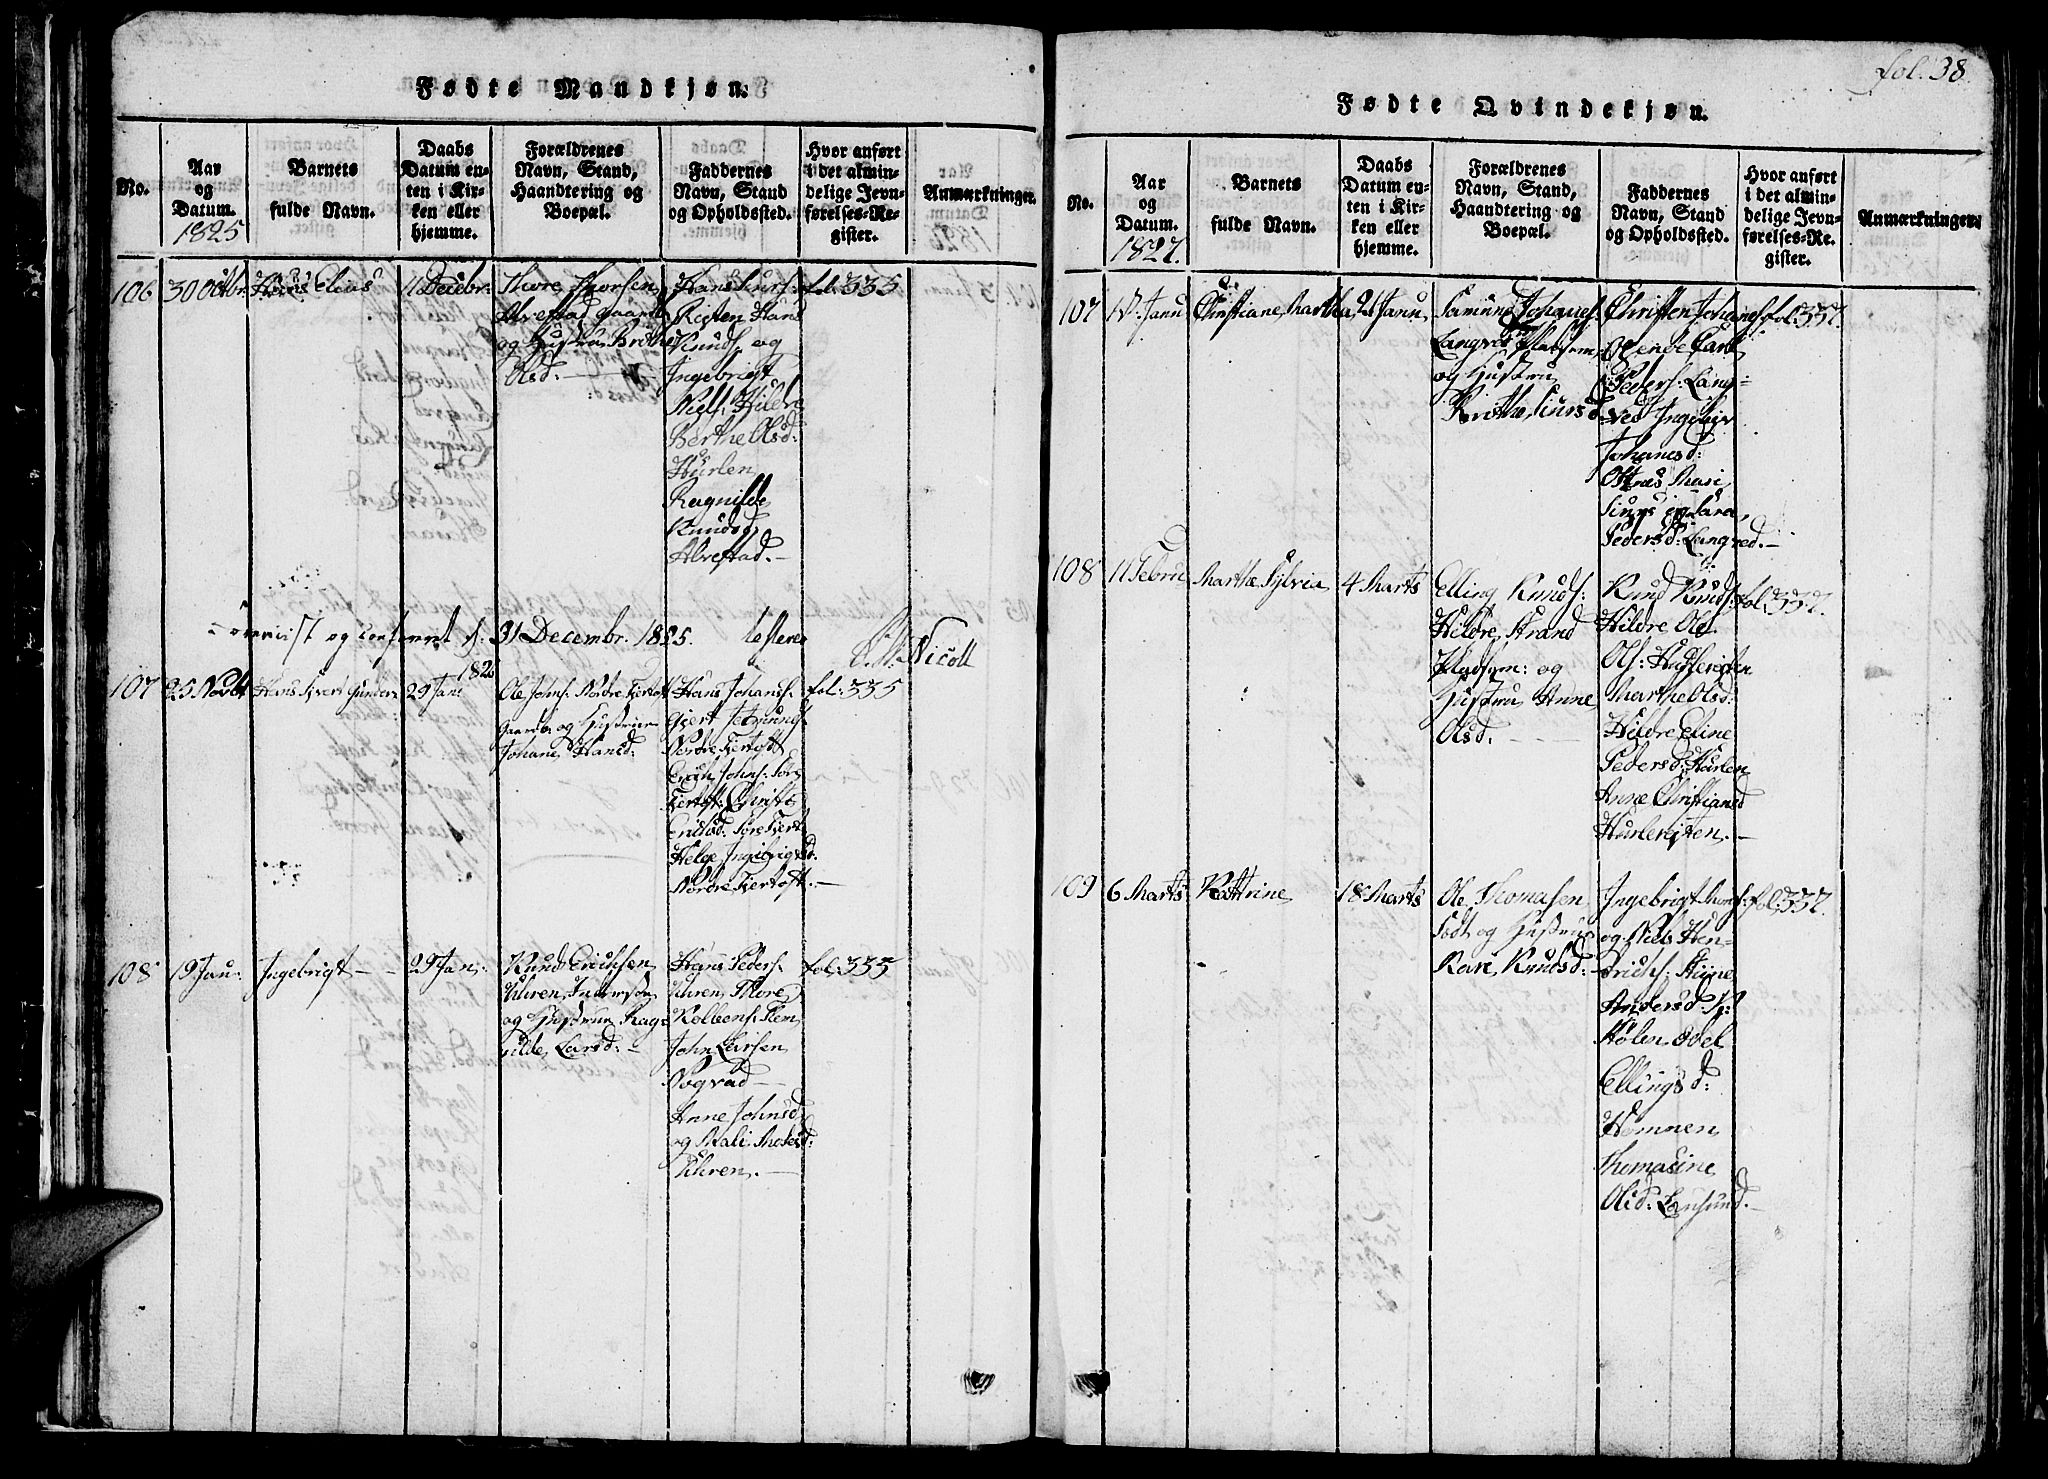 Fødte Mandkjøn.
No.
Aar og Datum. 1825
Barnets fulde Navn.
Daabs Datum enten i Kirken eller hjemme.
Forældrenes Navn, Stand, Haandtering og Boepæl.
Faddernes Navn, Stand og Opholdssted.
Hvor anført i det almindelige Jevnførelses-Register.
Anmærkninger.
106
30 Octbr.
Hans Elias
11 Decibr.
Thore Thorsen
Alvestad Gaardb
og Hustru Brithe
Olsd.
Hans Siurs:
Resten Hans
Knuds. og
Ingebrigt
Niels. Hildre
Berthe Olsd:
Hurlen
Ragnilde
Knudsd
Alvestad.
fol: 335
og 31 Decembr. 1825.
Nicoll
107
25 Novbr
1826
29 Jan:
Ole Johns. Nordre Fiertoft
Gaardb. og Hustrue
Johane Hansd:
Hans Johans.
Giert
Nordre Fiertoft
Erich Johns: Sør
Fiertoft: Christi
Erichsd. Søre Fiert
Helge Ingebrigtsd.
Nordre Fiertoft.
fol: 335
108
19 Jan:
Ingebrigt
29 Jan:
Knud Erichsen
Uhren, Inderson
og Hustrue Rag-
nilde Larsd:
Hans Peders.
Uhren, Thore
Kolbens: Flem
John Larsen
Nogvad
Anne Johnsd
og Mali
Uhren.
fol: 335
fol. 38
Fødte Qvindekjøn.
No.
Aar og Datum. 1827.
Barnets fulde Navn.
Daabs Datum enten i Kirken eller hjemme.
Forældrenes Navn, Stand, Haandtering og Boepæl.
Faddernes Navn, Stand og Opholdssted.
Hvor anført i det almindelige Jevnførelses-Register.
Anmærkninger.
107
17 Janu
Christiane Martha
21 Janu
Johanes:
Langved Pladsem
og Hustru
Brithe Siursd
Christen Johanes
Peders: Lang-
ved Ingebor
Johanesd:
Ostnes Mari
Siurs og Sara
Pedersd: Langved.
fol: 337.
108
11 Febru
Marthe Sylvia
4 Marts
Elling Knuds:
Hildre Strand
Pladsem: og
Hustru Anne
Olsd.
Knud Knuds:
Hildre Ole
Ols: Huslereiten
Marthe Olsd:
Hildre Eline
Pedersd: Hurlen
Anne Christiansd
Hurlereiten.
fol: 337.
109
6 Marts
Kattrine
18 Marts
Ole Thomasen
født og Hustrue
Kari Knudsd:
Ingebrigt
og Niels Hen-
drichs:
Andersd
Odel
Ellingsd:
Hamnen
Thomasine
Olsd: Longsund.
fol: 337.